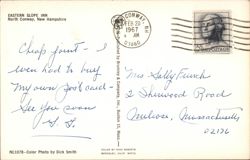 EASTERN SLOPE INN
North Conway, New Hampshire
CONWAY, N.H.
FEB 22
1967
AM
Cheap joint - I
even had to buy
my own post card -
See you soon
Mrs Sally Finch
2 Sherwood Road
Melrose, Massachusetts
02176
NC1078-Color Photo by Dick Smith